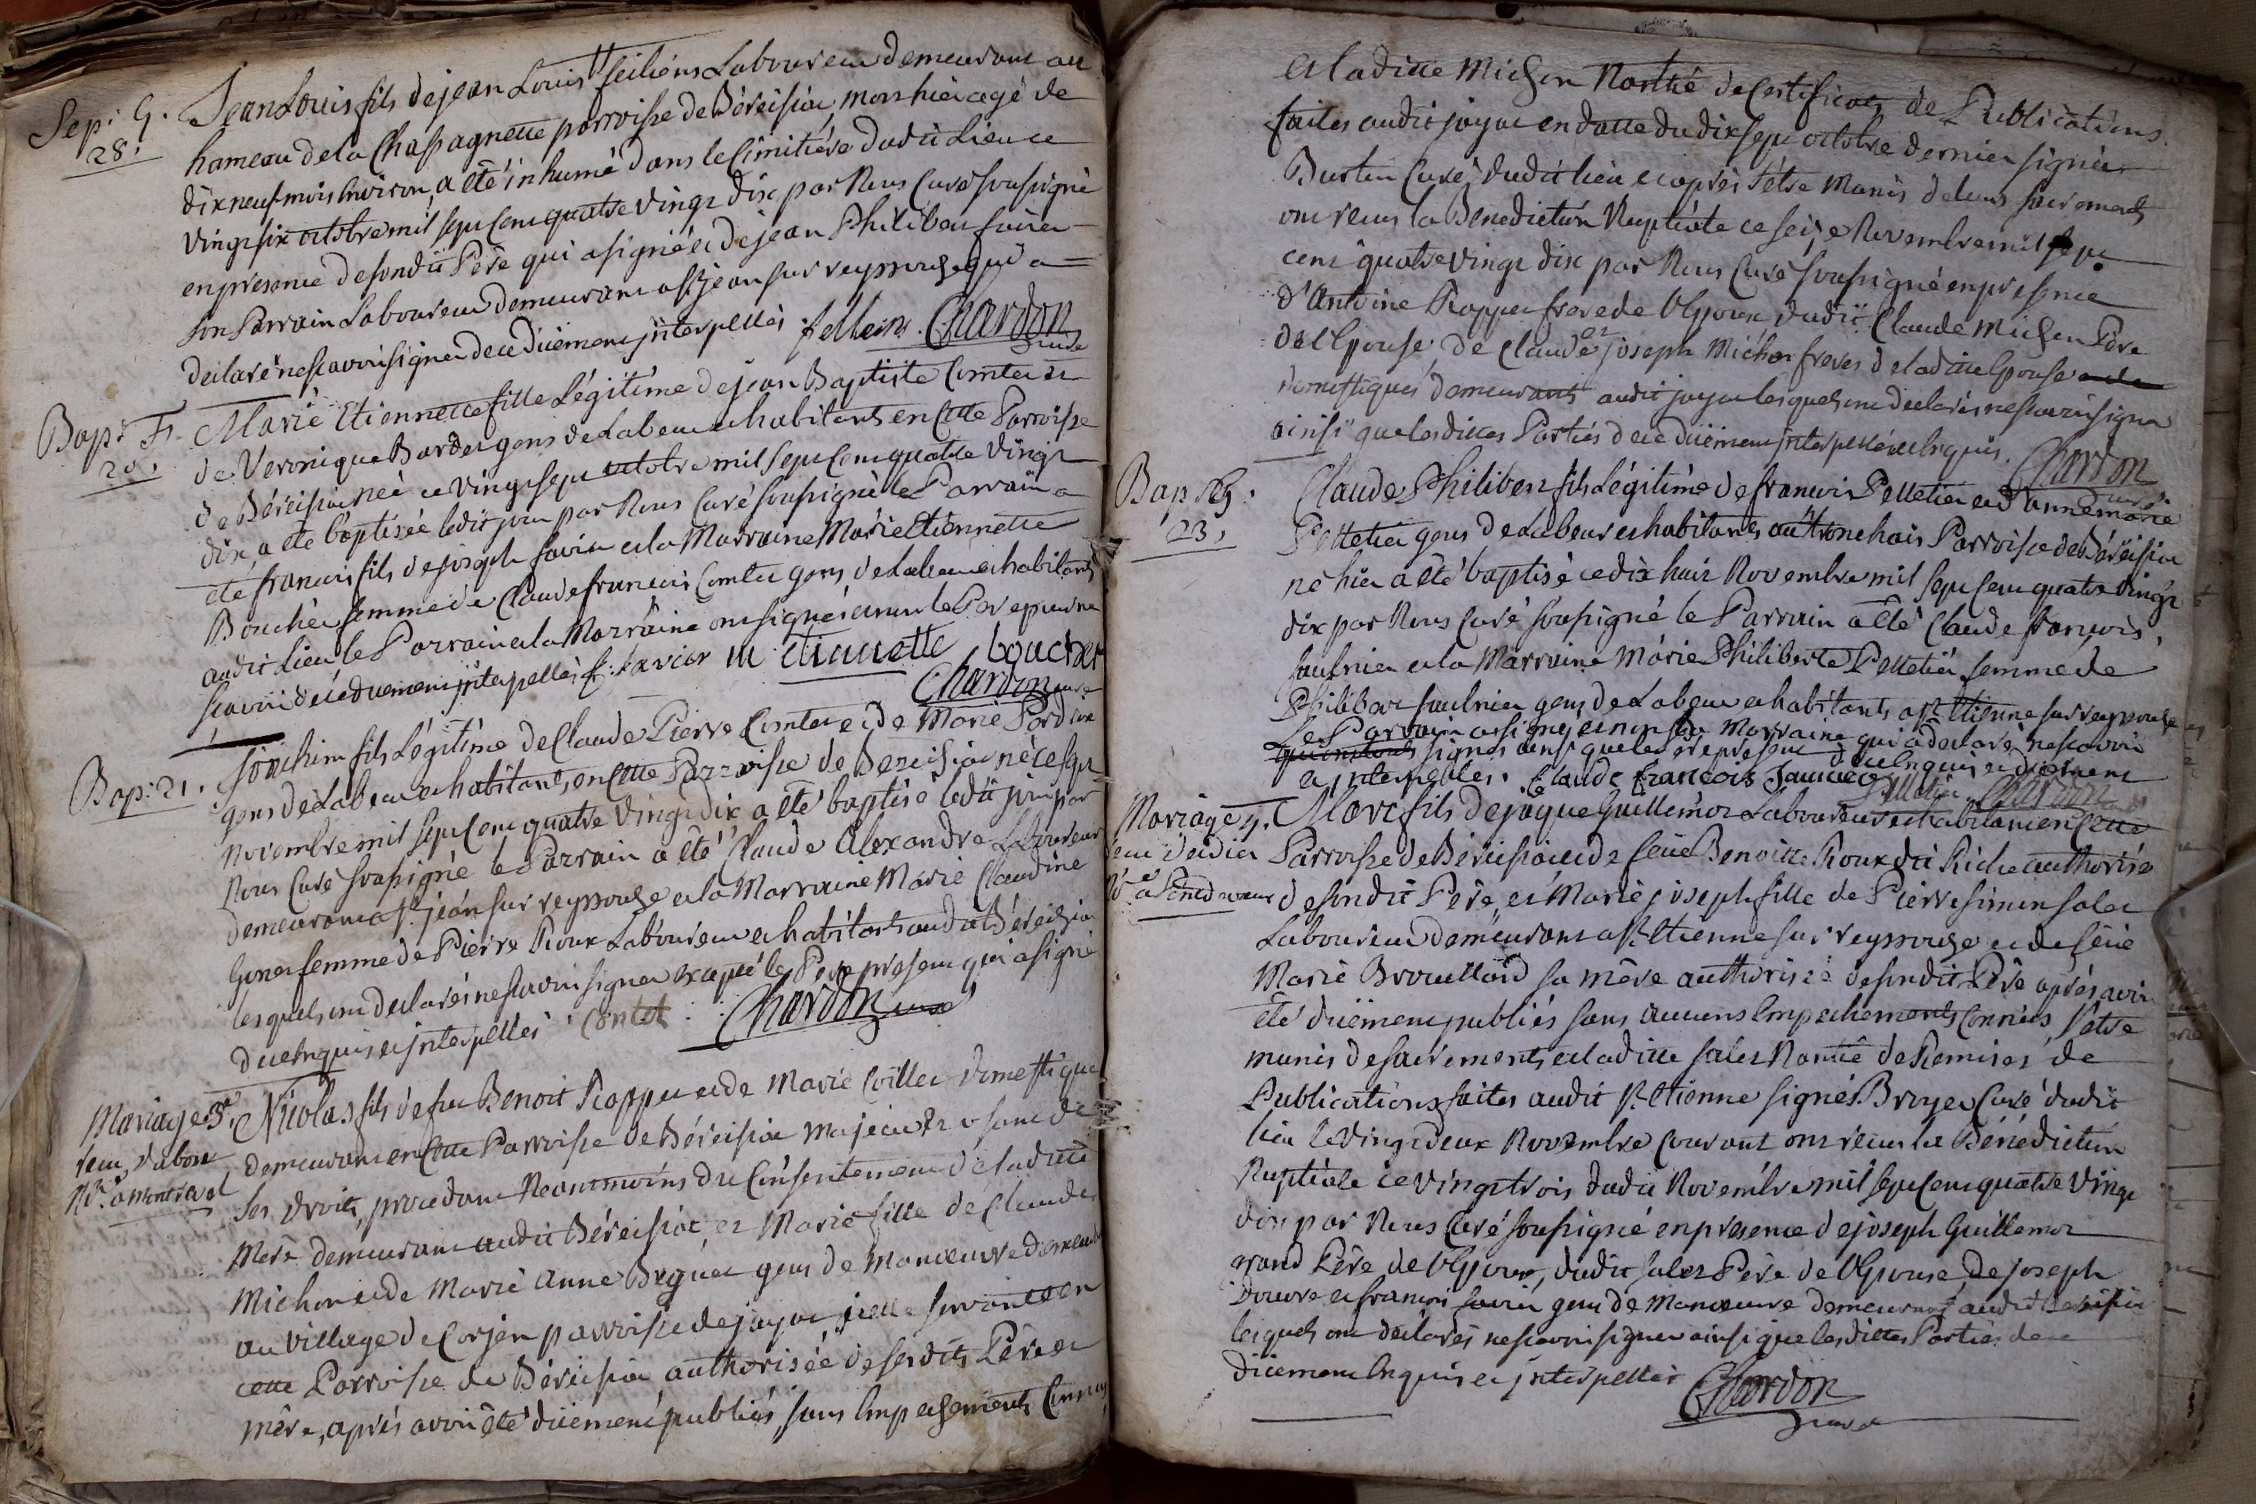 Sep: G.
28.
Jean Louis fils de jean Louis feilléns Laboureur demeurant au
hameau de la Chassagnette parroisse de Béréisiat, mort hier agé de
dix neuf mois Environ, a été inhumé dans le Cimitière dudit Lieu ce
vingt six octobre mil sept cent quatre vingt dix par Nous Curé soussigné
en presence de sondit Père qui a signé et de jean Philibert
son Parrain Laboureur demeurant a st jean sur reyssouze qui a
declaré ne scavoir signer de ce düement interpellés. felleins. Chardon
curé
Bap: F.
20.
Marie Etiennette fille Légitime de jean Baptiste Comtet et
de Veronique Bardet gens de Labeur et habitants en Cette Parroisse
de Béréisiat née ce vingt sept octobre mil sept Cent quatre vingt
dix, a été baptisée ledit jour par Nous Curé soussigné le Parrain a
été francois fils de joseph savin et la Marraine Marie Etiennette
Bouchet femme de Claude francois Comtet gens de Labeur et habitants
audit Lieu le Parrain et la Marraine ont signé et non le Pere pour ne
scavoir de ce duement jnterpellés f: savior m etiennette bouchet
Chardon curé
Bap: 21.
Joachim fils Légitime de Claude Pierre Comtet et de Marie Pordon
gens de Labeur et habitants en Cette Parroisse de Bereisiat né ce sept
Novembre mil sept Cent quatre vingt dix a été baptisé ledit jour par
Nous Curé soussigné le Parrain a été Claude Alexandre Laboureur
demeurant a st jean sur reyssouze et la Marraine Marie Claudine
femme de Pierre Roux Laboureur et habitants audit Béréisiat
lesquels ont declarés ne scavoir signer excepté le Pere present qui a signé
de ce Enquis et jnterpellés Contet Chardon curé
Mariage 3e.
Nicolas fils de feu Benoit Roppet et de Marie Coillet domestique
demeurant en Cette Parroisse de Béréisiat majeur et usant de
N.re a Montrevel
ses droits, procedant Néantmoins du Consentement de ladite
Mere demeurant audit Béréisiat, et Marie fille de Claude
Michon et de Marie Anne Buguet gens de Manœuvre demeurants
au village de Corjen parroisse de jayat jcelle servante en
cette Parroisse de Béréisiat authorisée de sesdits Père et
mère, après avoir été düement publiés, sans Empechements Connus
et ladite Michon Nantié de Certificats de Publications
faites audit jayat en datte du dix sept octobre dernier signés
Burtin Curé dudit lieu et après s'être Munis de leurs sacrements
ont reçus la Benediction Nuptiale ce seize Novembre mil sept
cent quatre vingt dix par Nous Curé soussigné en presence
d'Antoine Roppet frere de l'Epoux dudit Claude Michon Père
de l'Epouse, de Claude et joseph Michon freres de ladite Epouse
domestiques demeurants audit jayat lesquels ont declarés ne scavoir signer
ainsi que lesdittes Parties de ce düement jnterpellés et Enquis. Chardon
curé
Bap: G.
23.
Claude Philibert fils Légitime de francois Pelletier et d'anne marie
Pelletier gens de Labeur et habitants au Parroisse de Béréisiat
né hier a été baptisé ce dix huit Novembre mil sept Cent quatre vingt
dix par Nous Curé soussigné le Parrain a été Claude francois
saulnier et la Marraine Marie Philiberte Pelletier femme de
Philibert saulnier gens de Labeur et habitants a st Etienne sur reyssouze
Le Parrain a signé, et non la Marraine qui a declaré ne scavoir
signer ainsi que le Père present de ce Enquis et düement
et jnterpellés. Claude francois Saunier Chardon
Mariage 4.
Marc fils de jaque Guillemot Laboureur et habitant en Cette
Parroisse de Béréisiat et de feüe Benoitte Roux dit Riche authorisé
de sondit Père, et Marie joseph fille de Pierre simon salet
Laboureur demeurant a st Etienne sur reyssouze et de feüe
Marie Brouillard sa mère authorisée de sondit Père après avoir
été düement publiés sans aucuns Empechements Connus s'être
munis de sacrements et ladite salet Nantié de Remises de
Publications faites audit st Etienne signés Broyer Curé dudit
lieu le vingt deux Novembre Courant ont reçus la Bénédiction
Nuptiale ce vingt trois dudit Novembre mil sept Cent quatre vingt
dix par Nous Curé soussigné en presence de joseph Guillemot
grand Père de l'Epoux, dudit salet Père de l'Epouse, de joseph
et francois savin gens de Manœuvre demeurants audit Béréisiat
lesquels ont déclarés ne scavoir signer ainsi que lesdittes Parties de ce
düement Enquis et jnterpellés Chardon
curé